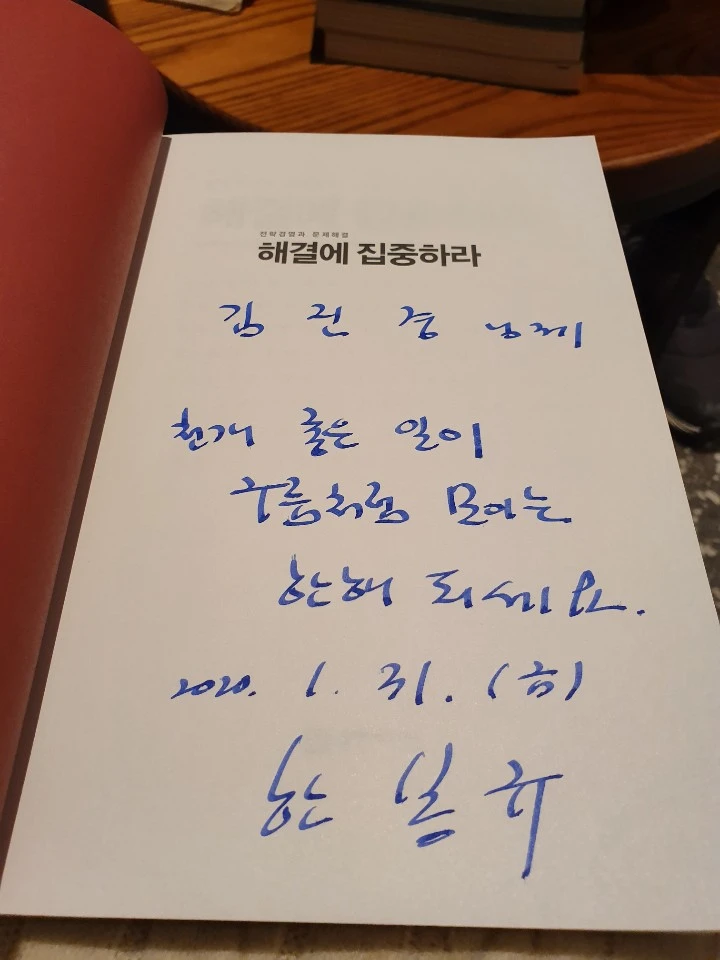 전략경영과 문제해결
해결에 집중하라
김 진 경 님께
천개 좋은 일이
구름처럼 모이는
한해 되세요.
2020. 1. 31. (금)
한 봉 규